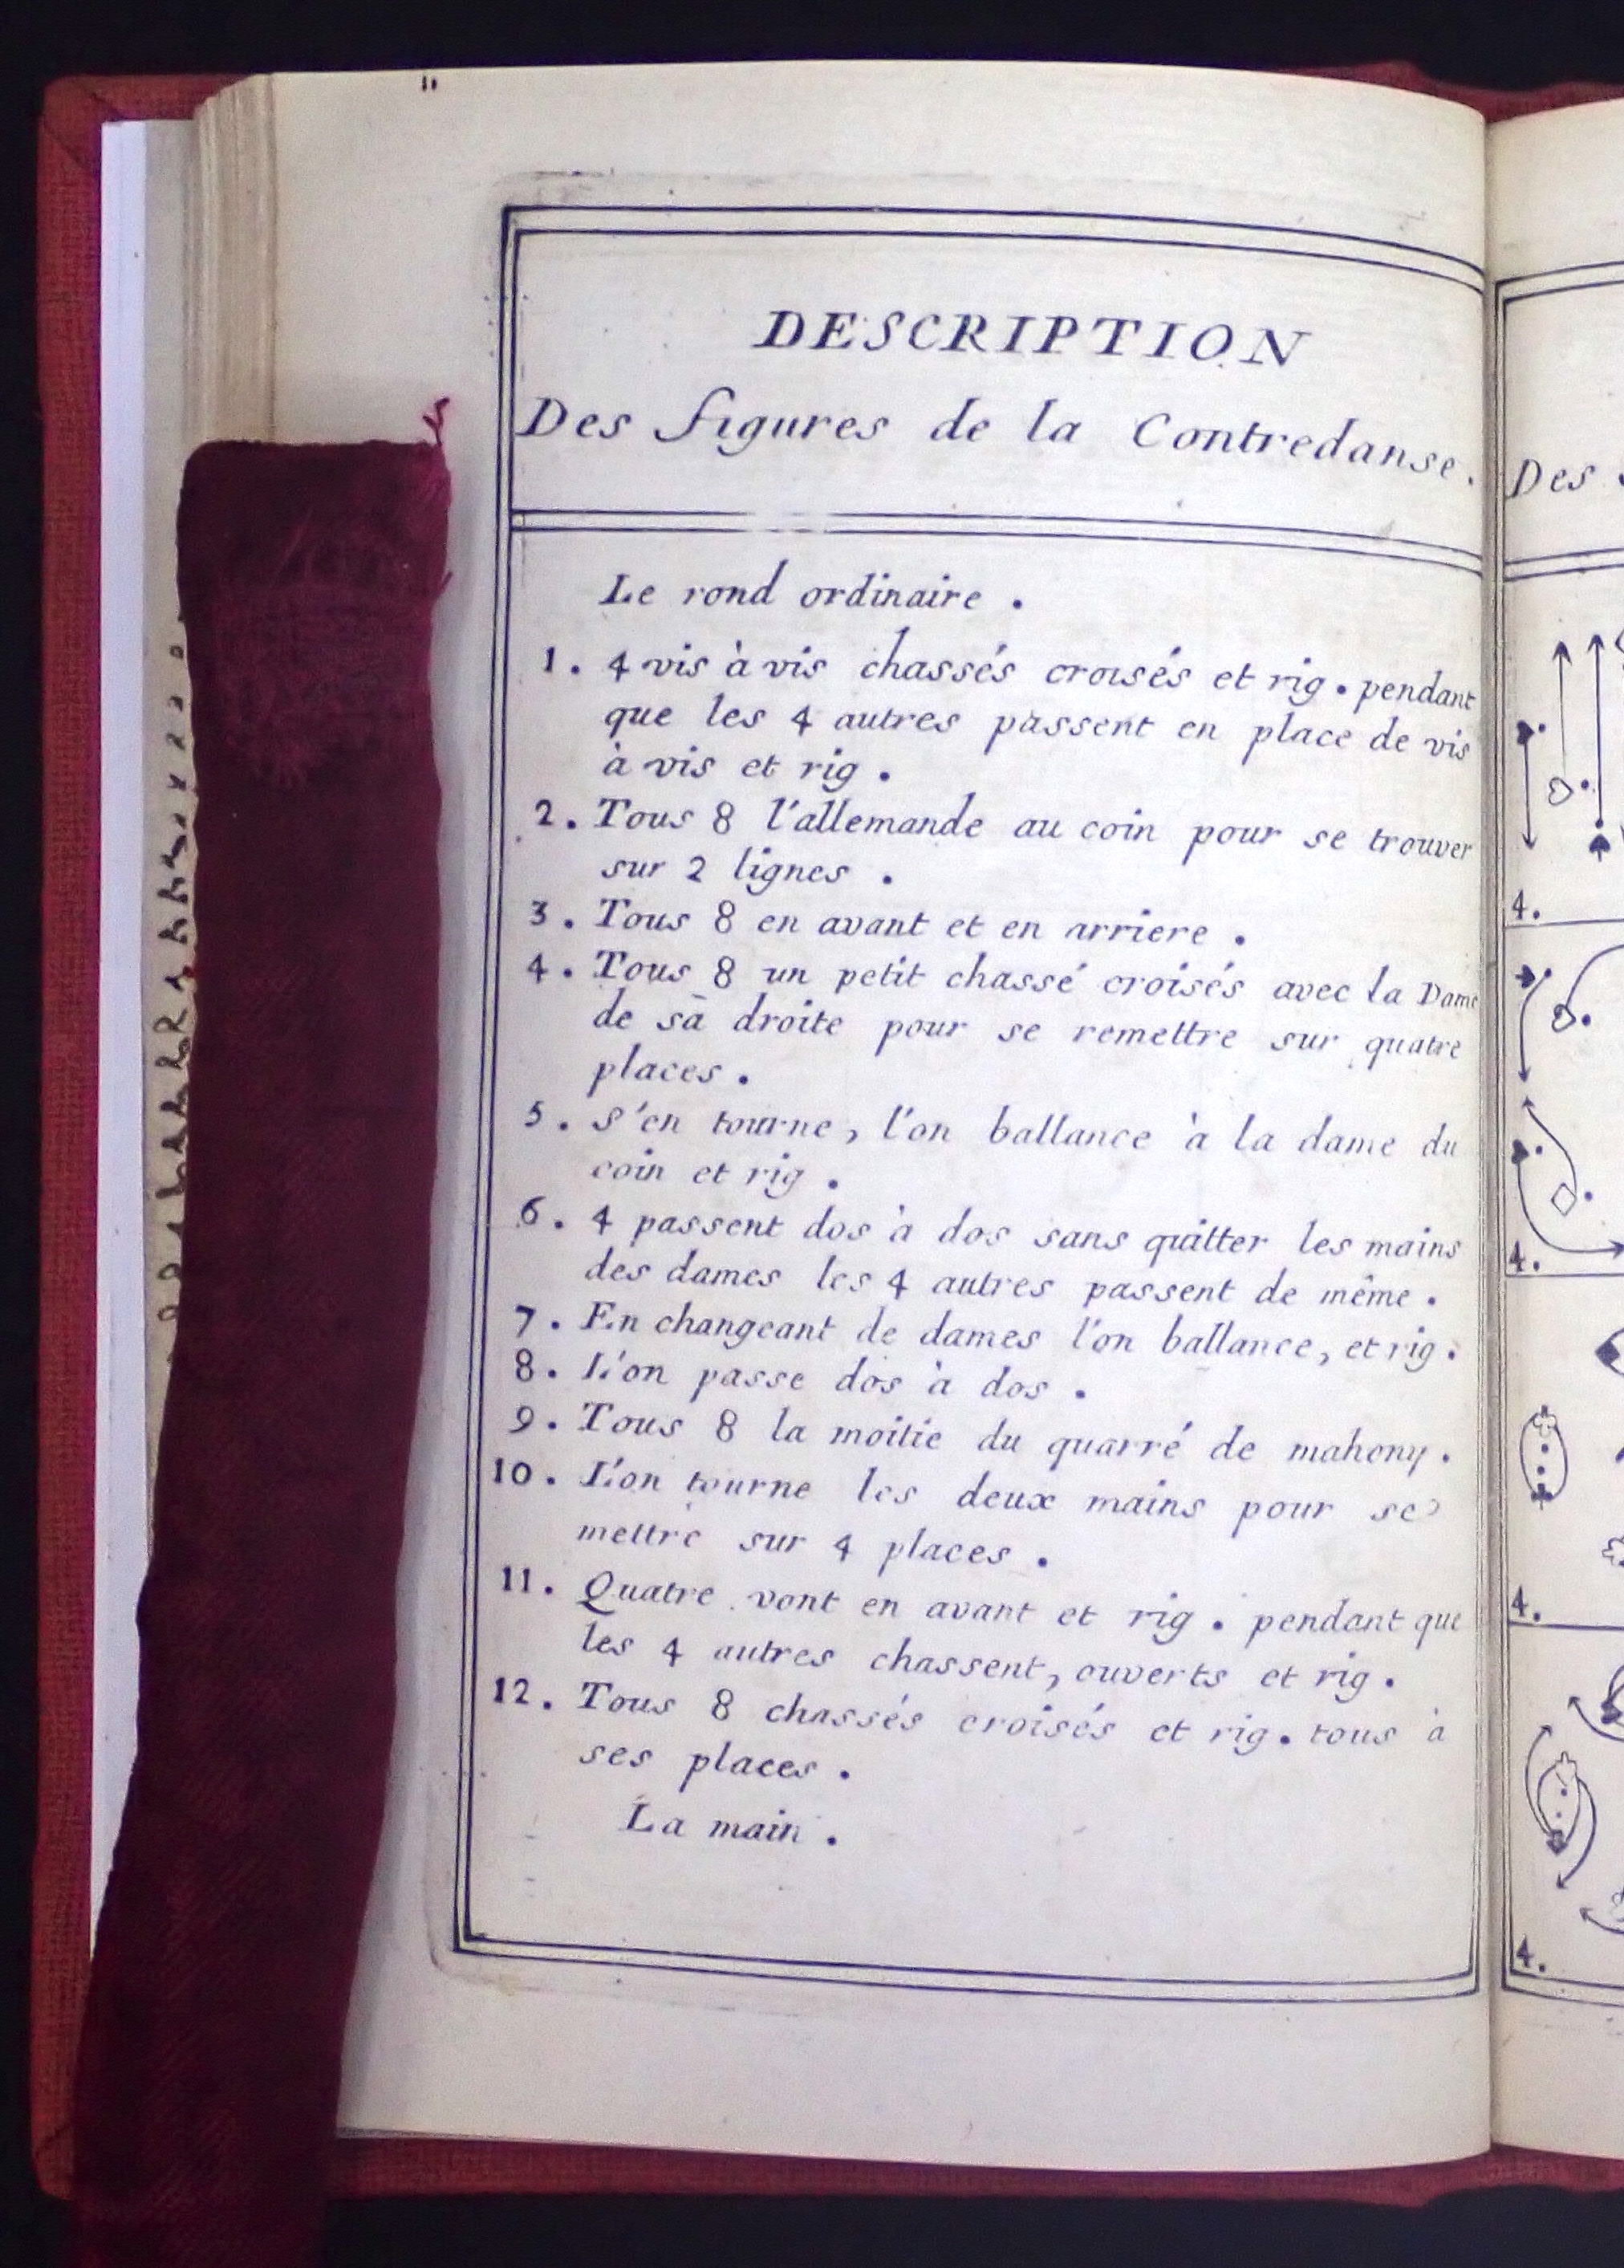 DESCRIPTION
Des figures de la Contredanse.
Le rond ordinaire .
1. 4 vis à vis chassés croisés et rig. pendant
que les 4 autres passent en place de vis
à vis et rig .
2. Tous 8 l'allemande au coin pour se trouver
sur 2 lignes .
3. Tous 8 en avant et en arriere .
4. Tous 8 un petit chassé croisés avec la Dame
de sa droite pour se remettre sur quatre
places .
5. S'en tourne, l'on ballance à la dame du
coin et rig .
6. 4 passent dos à dos sans quitter les mains
des dames les 4 autres passent de même .
7. En changeant de dames l'on ballance, et rig.
8. L'on passe dos à dos .
9. Tous 8 la moitie du quarré de mahony .
10. L'on tourne les deux mains pour se
mettre sur 4 places .
11. Quatre vont en avant et rig . pendant que
les 4 autres chassent, ouverts et rig .
12. Tous 8 chassés croisés et rig. tous à
ses places .
La main .
Des
4.
4.
4.
4.